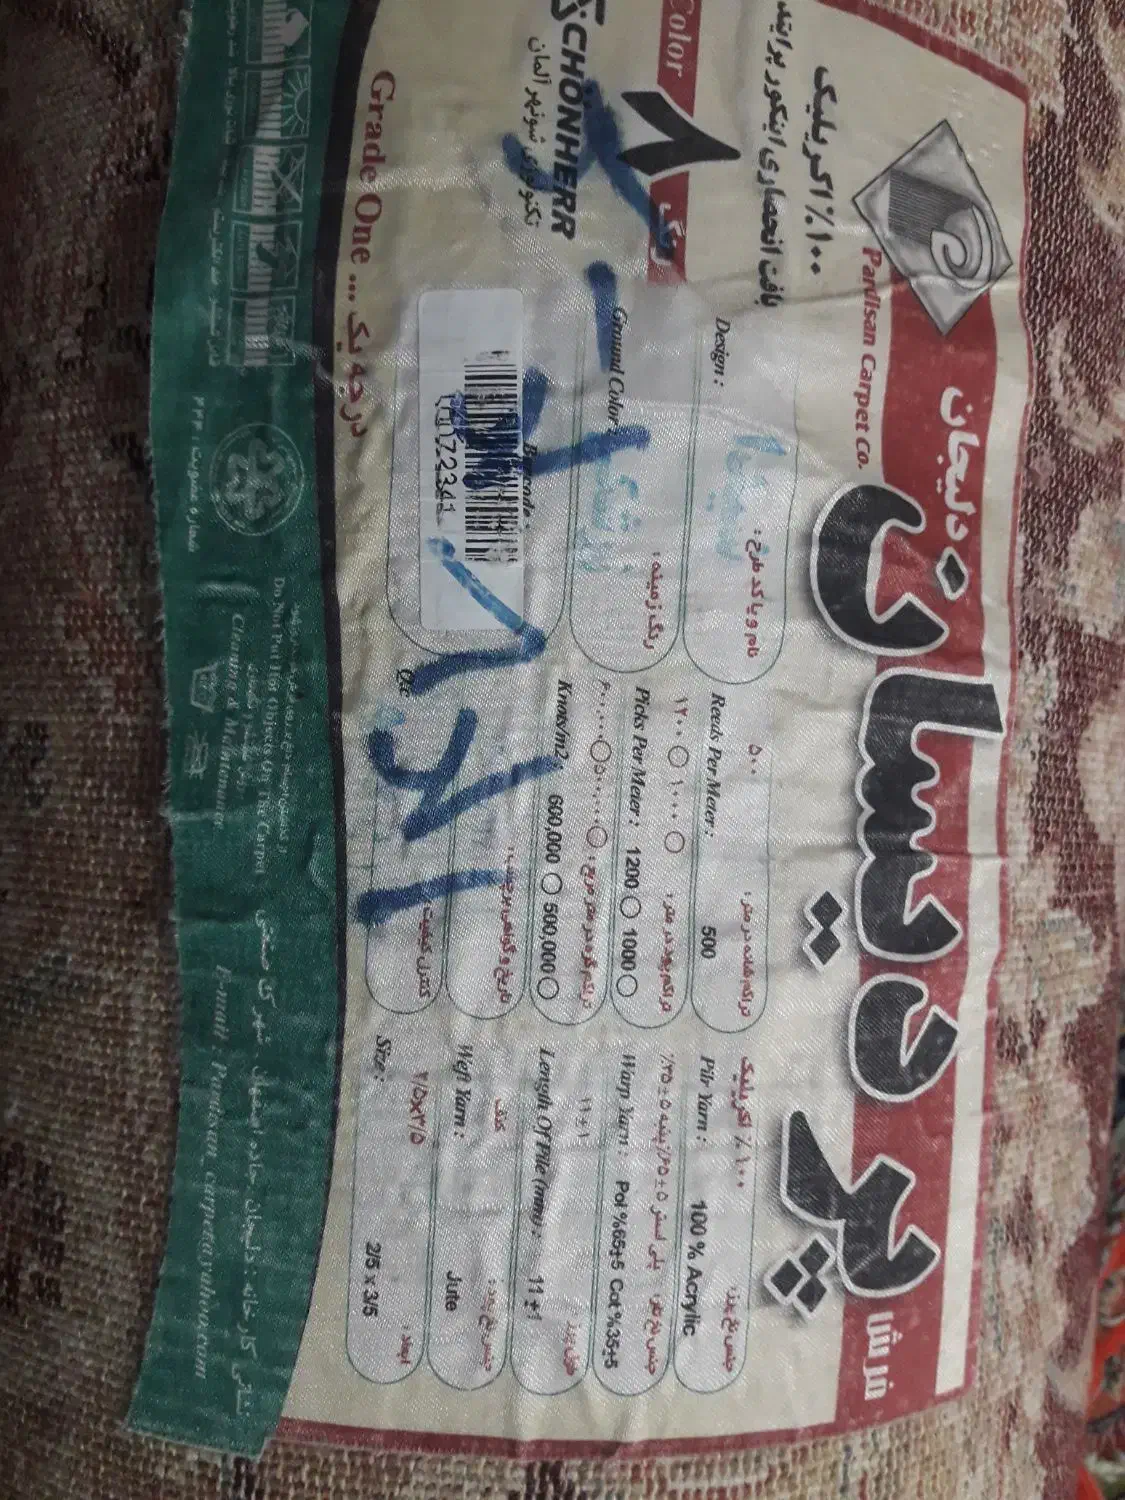 فرش پردیسان دلیجان
Pardisan Carpet Co.
۱۰۰٪ اکریلیک
بافت انحصاری اینکور برایند
Color ۸ رنگ
SCHONHERR
تکنولوژی شونهر آلمان
Grade One ... درجه یک
Design :
نام و یا کد طرح :
Ground Color :
رنگ زمینه :
Barcode :
72341
تراکم شانه در متر : ۵۰۰
Reeds Per Meter : 500
تراکم پود در متر : ۱۰۰۰ ۱۲۰۰
Picks Per Meter : 1200 1000
تراکم گره در متر مربع : ۵۰۰,۰۰۰ ۶۰۰,۰۰۰
Knots/m2 600,000 500,000
کنترل کیفیت :
جنس نخ پرز : ۱۰۰٪ اکریلیک
Pile Yarn : 100 % Acrylic
جنس نخ تار : پلی استر ۵±۶۵٪ پنبه ۵±۳۵٪
Warp Yarn : Pol %65±5 Cot %35±5
طول پرز : ۱۱±۱
Length Of Pile (mm) : 11±1
جنس نخ پود : کنف
Weft Yarn : Jute
ابعاد : ۲/۵x۳/۵
Size : 2/5 x 3/5
Do Not Put Hot Objects On The Carpet
Cleaning & Maintenance
شماره عضویت : ۲۴۲
E-mail : Pardisan_carpet@yahoo.com